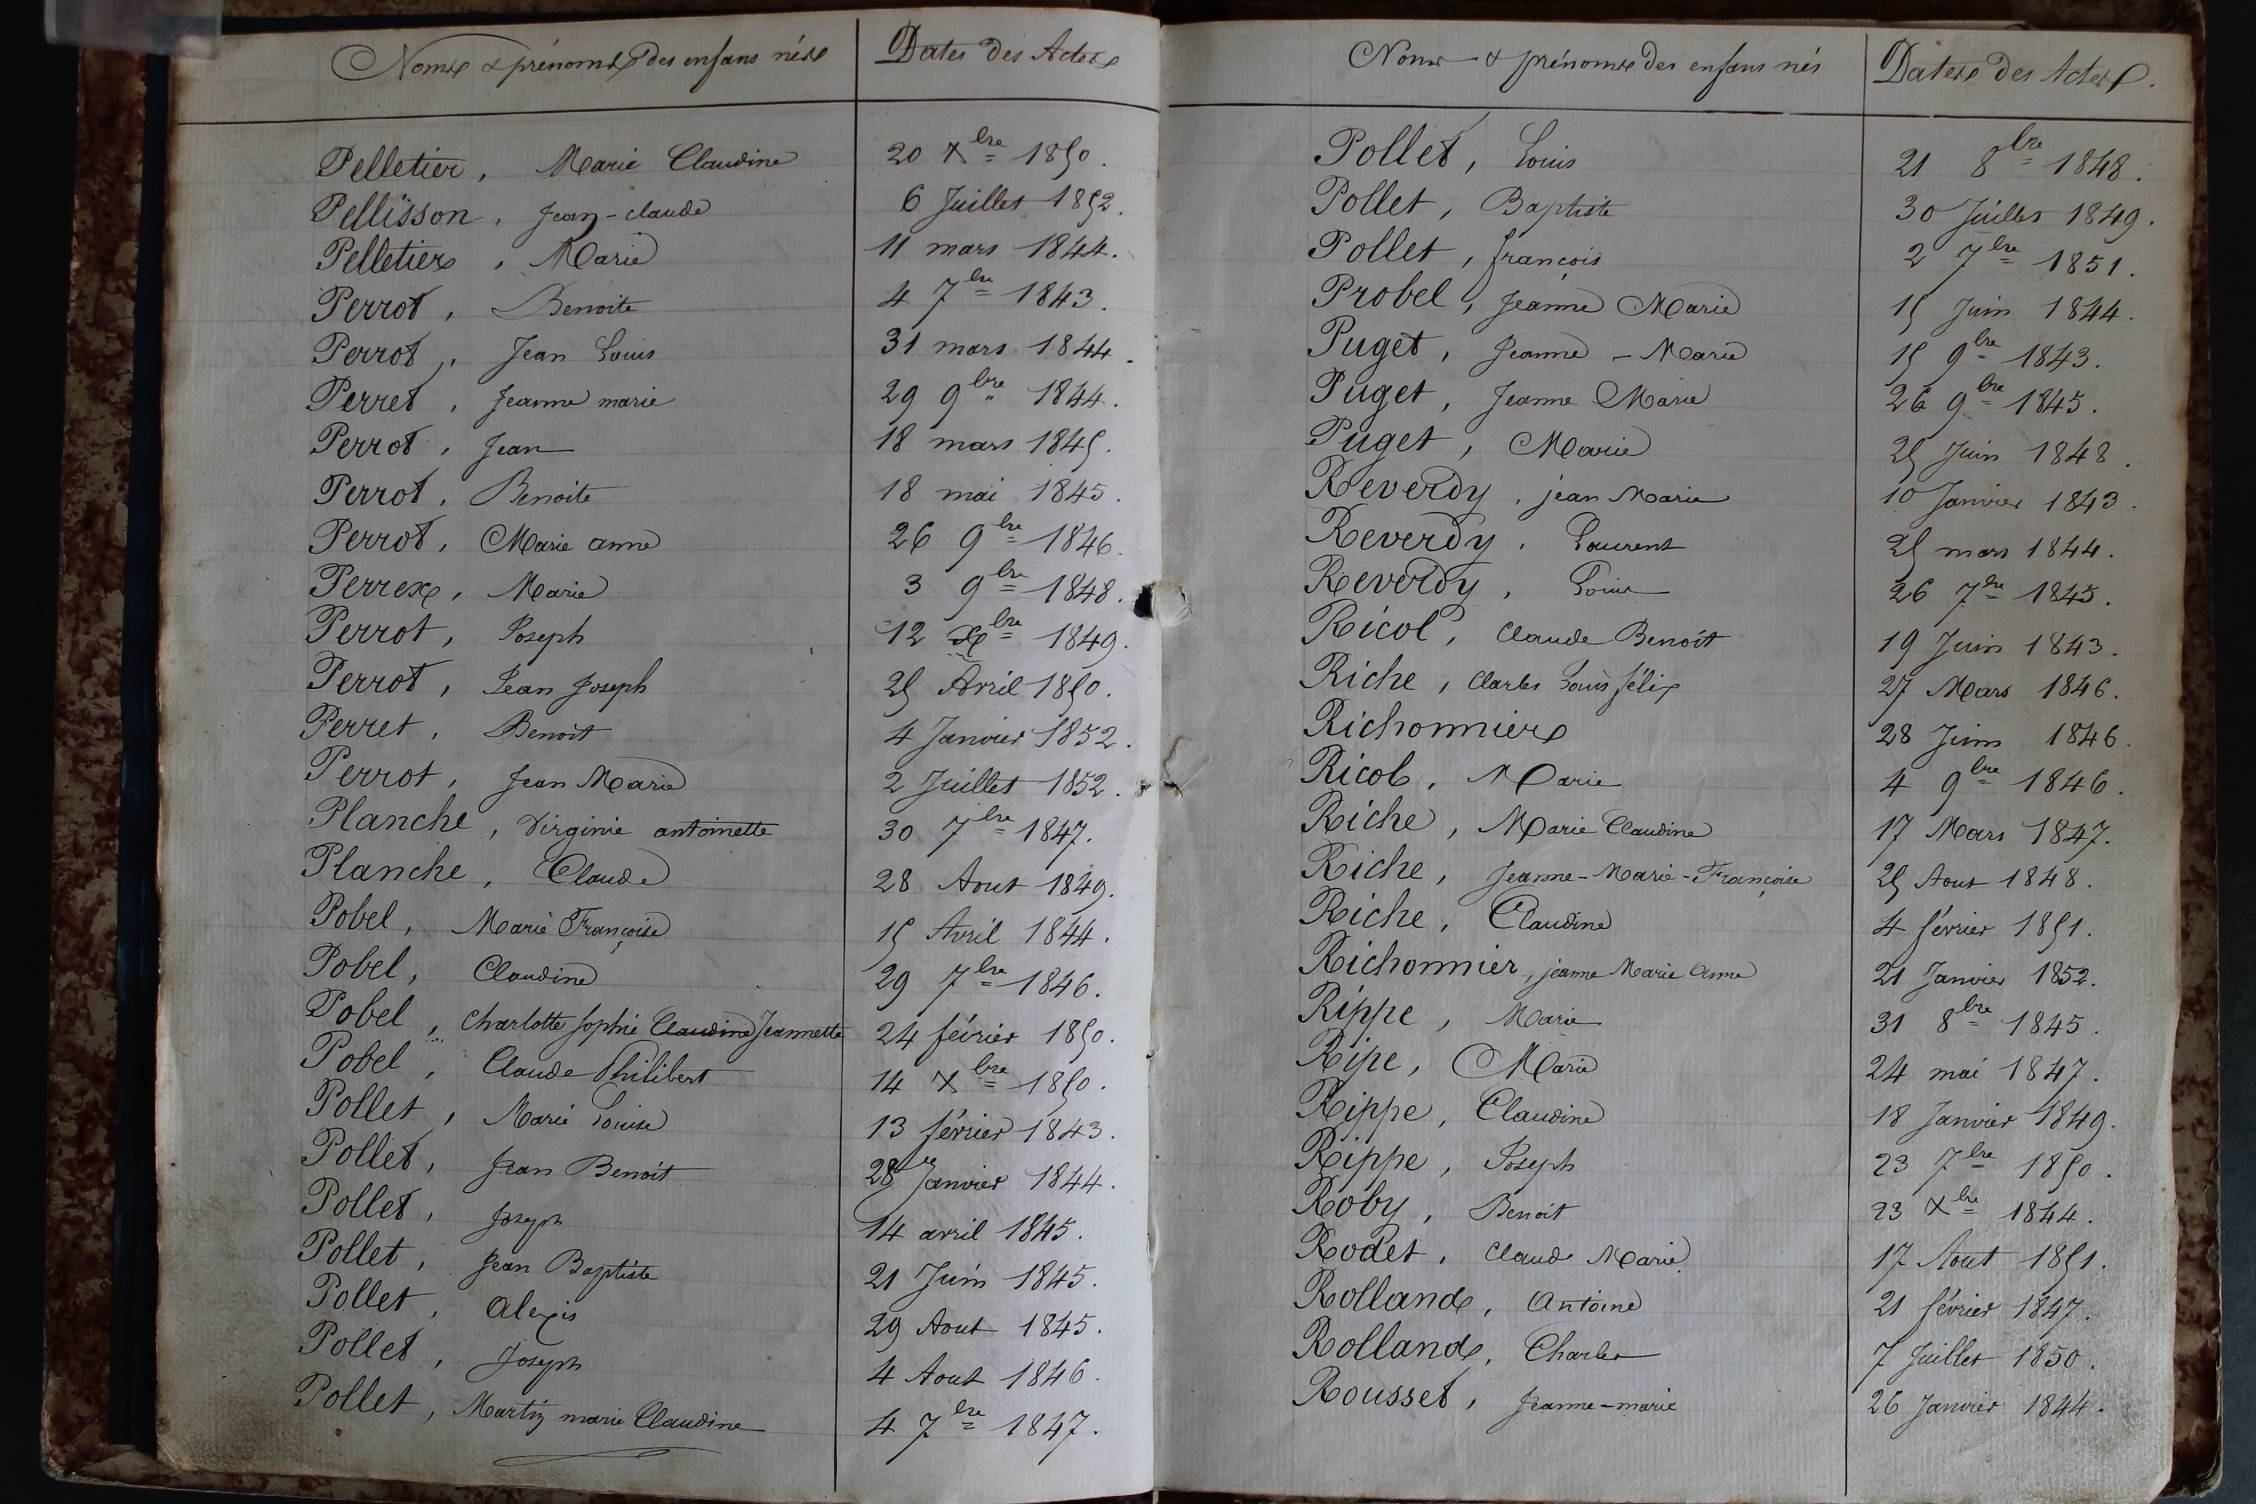 Noms & prénoms des enfans nés
Dates des Actes
Pelletier, Marie Claudine 20 Xbre 1850.
Pellïsson, Jean-claude 6 Juillet 1852.
Pelletier, Marie 11 mars 1844.
Perrot, Benoite 4 7bre 1843.
Perrot, Jean Louis 31 mars 1844.
Perret, Jeanne marie 29 9bre 1844.
Perrot, Jean 18 mars 1845.
Perrot, Benoite 18 mai 1845.
Perrot, Marie anne 26 9bre 1846.
Perrex, Marie 3 9bre 1848.
Perrot, Joseph 12 Xbre 1849.
Perrot, Jean Joseph 25 Avril 1850.
Perret, Benoit 4 Janvier 1852.
Perrot, Jean Marie 2 Juillet 1852.
Planche, Virginie antoinette 30 7bre 1847.
Planche, Claude 28 Aout 1849.
Pobel, Marie Françoise 15 Avril 1844.
Pobel, Claudine 29 7bre 1846.
Pobel, Charlotte Sophie Claudine Jeannette 24 février 1850.
Pobel, Claude Philibert 14 Xbre 1850.
Pollet, Marie Louise 13 février 1843.
Pollet, Jean Benoit 28 Janvier 1844.
Pollet, Joseph 14 avril 1845.
Pollet, Jean Baptiste 21 Juin 1845.
Pollet, alexis 29 Aout 1845.
Pollet, Joseph 4 Aout 1846.
Pollet, Martin marie Claudine 4 7bre 1847.
Noms & prénoms des enfans nés
Dates des Actes.
Pollet, Louis 21 8bre 1848.
Pollet, Baptiste 30 Juillet 1849.
Pollet, françois 2 7bre 1851.
Probel, Jeanne Marie 15 Juin 1844.
Puget, Jeanne-Marie 15 9bre 1843.
Puget, Jeanne Marie 26 9bre 1845.
Puget, Marie 25 Juin 1848.
Reverdy, jean Marie 10 Janvier 1843.
Reverdy, Laurent 25 mars 1844.
Reverdy, Louis 26 7bre 1845.
Ricol, Claude Benoit 19 Juin 1843.
Riche, Charles Louis félix 27 Mars 1846.
Richonnier 28 Juin 1846.
Ricol, Marie 4 9bre 1846.
Riche, Marie Claudine 17 Mars 1847.
Riche, Jeanne-Marie-Françoise 25 Aout 1848.
Riche, Claudine 4 février 1851.
Richonnier, jeanne Marie Anne 21 Janvier 1852.
Rippe, Marie 31 8bre 1845.
Ripe, Marie 24 mai 1847.
Rippe, Claudine 18 Janvier 1849.
Rippe, Joseph 23 7bre 1850.
Roby, Benoit 23 Xbre 1844.
Rodet, Claude Marie 17 Aout 1851.
Rolland, Antoine 21 février 1847.
Rolland, Charles 7 Juillet 1850.
Rousset, Jeanne-marie 26 Janvier 1844.